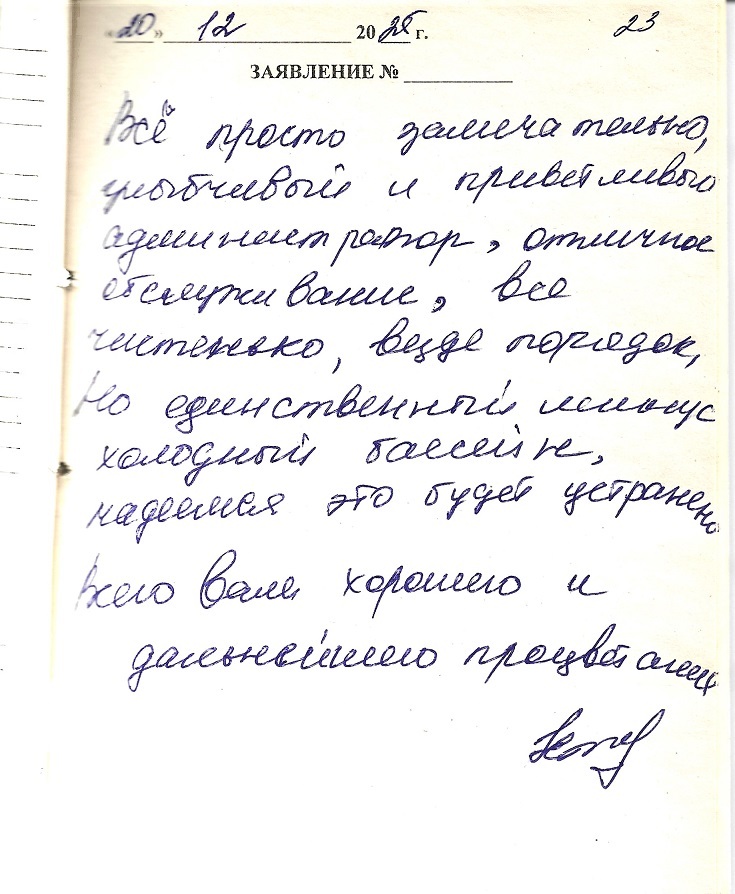 «20» 12 2025 г. 23
ЗАЯВЛЕНИЕ №
Всё просто замечательно,
улыбчивый и приветливый
администратор, отличное
обслуживание, все
чистенько, везде порядок,
Но единственный минус
холодный бассейн,
надеемся это будет устранено
Всего Вам хорошего и
дальнейшего процветания